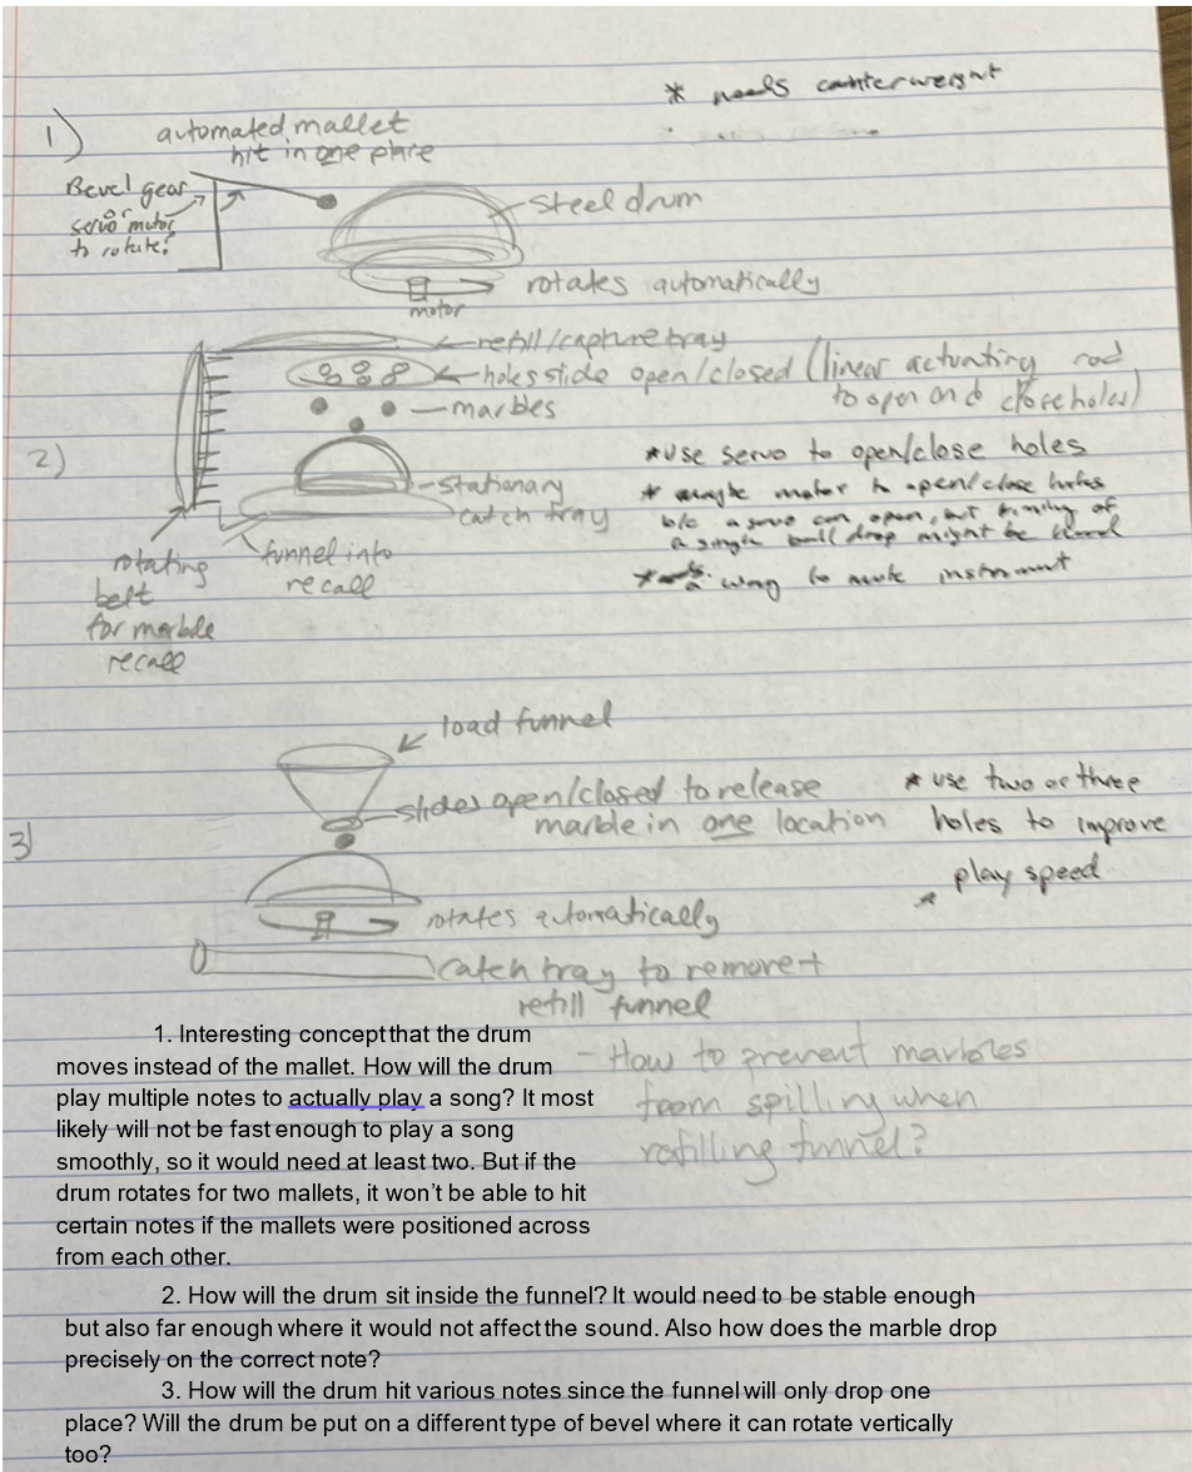 * needs counterweight
1) automated mallet
hit in one place
Bevel gear
or
servo motor
to rotate?
steel drum
rotates automatically
motor
refill/capture tray
holes slide open/closed (linear actuating rod
to open and close holes)
marbles
2)
stationary
catch tray
funnel into
recall
rotating
belt
for marble
recall
*use servo to open/close holes
* maybe motor to open/close holes
b/c a servo can open, but timing of
a single ball drop might be hard
way to mute instrument
load funnel
slides open/closed to release
marble in one location
* use two or three
holes to improve
play speed
3)
rotates automatically
catch tray to remove +
refill funnel
- How to prevent marbles
from spilling when
refilling funnel?
1. Interesting concept that the drum
moves instead of the mallet. How will the drum
play multiple notes to actually play a song? It most
likely will not be fast enough to play a song
smoothly, so it would need at least two. But if the
drum rotates for two mallets, it won't be able to hit
certain notes if the mallets were positioned across
from each other.
2. How will the drum sit inside the funnel? It would need to be stable enough
but also far enough where it would not affect the sound. Also how does the marble drop
precisely on the correct note?
3. How will the drum hit various notes since the funnel will only drop one
place? Will the drum be put on a different type of bevel where it can rotate vertically
too?